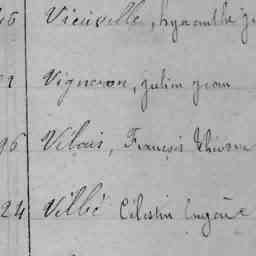 Vieuville, hyacinthe
Vigneron, julien jean
96 Vilais, François
24 Villé Célestin Eugène